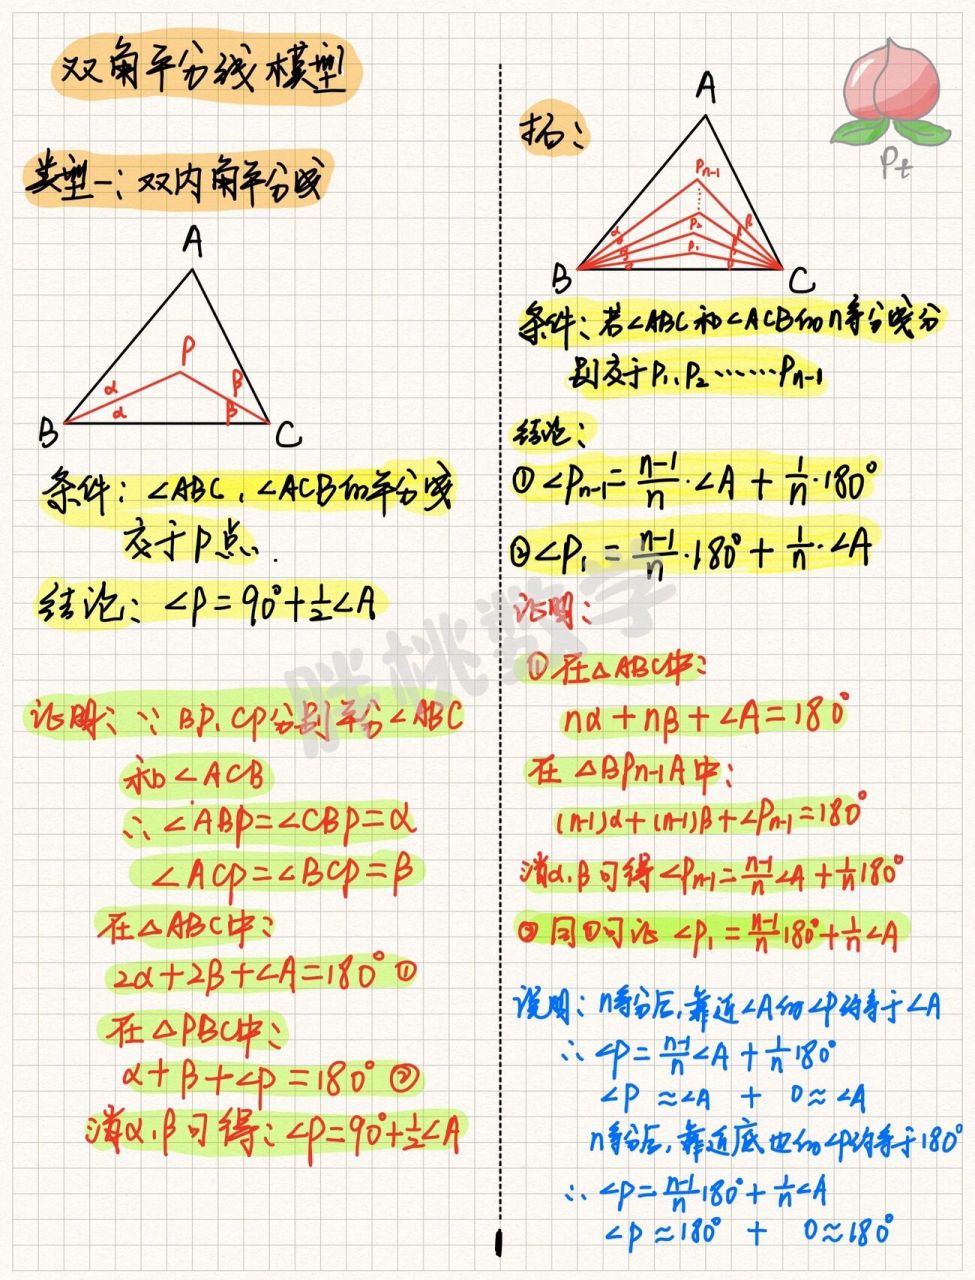 双角平分线模型
类型一：双内角平分线
A
P
α
β
α
β
B
C
条件：∠ABC、∠ACB的平分线
交于P点.
结论：∠P=90°+½∠A
证明：∵ BP、CP分别平分∠ABC
和∠ACB
∴ ∠ABP=∠CBP=α
∠ACP=∠BCP=β
在△ABC中：
2α+2β+∠A=180° ①
在△PBC中：
α+β+∠P=180° ②
消α、β可得：∠P=90°+½∠A
Pt
拓：
A
Pn-1
P2
P1
α
β
B
C
条件：若∠ABC和∠ACB的n等分线分
别交于P1、P2……Pn-1
结论：
① ∠Pn-1=(n-1)/n·∠A+1/n·180°
② ∠P1=(n-1)/n·180°+1/n·∠A
证明：
① 在△ABC中：
nα+nβ+∠A=180°
在△BPn-1A中：
(n-1)α+(n-1)β+∠Pn-1=180°
消α、β可得∠Pn-1=(n-1)/n∠A+1/n180°
② 同①可证 ∠P1=(n-1)/n180°+1/n∠A
说明：n等分后，靠近∠A的∠P约等于∠A
∴ ∠P=(n-1)/n∠A+1/n180°
∠P≈∠A + 0≈∠A
n等分后，靠近底边的∠P约等于180°
∴ ∠P=(n-1)/n180°+1/n∠A
∠P≈180° + 0≈180°
胖桃数学